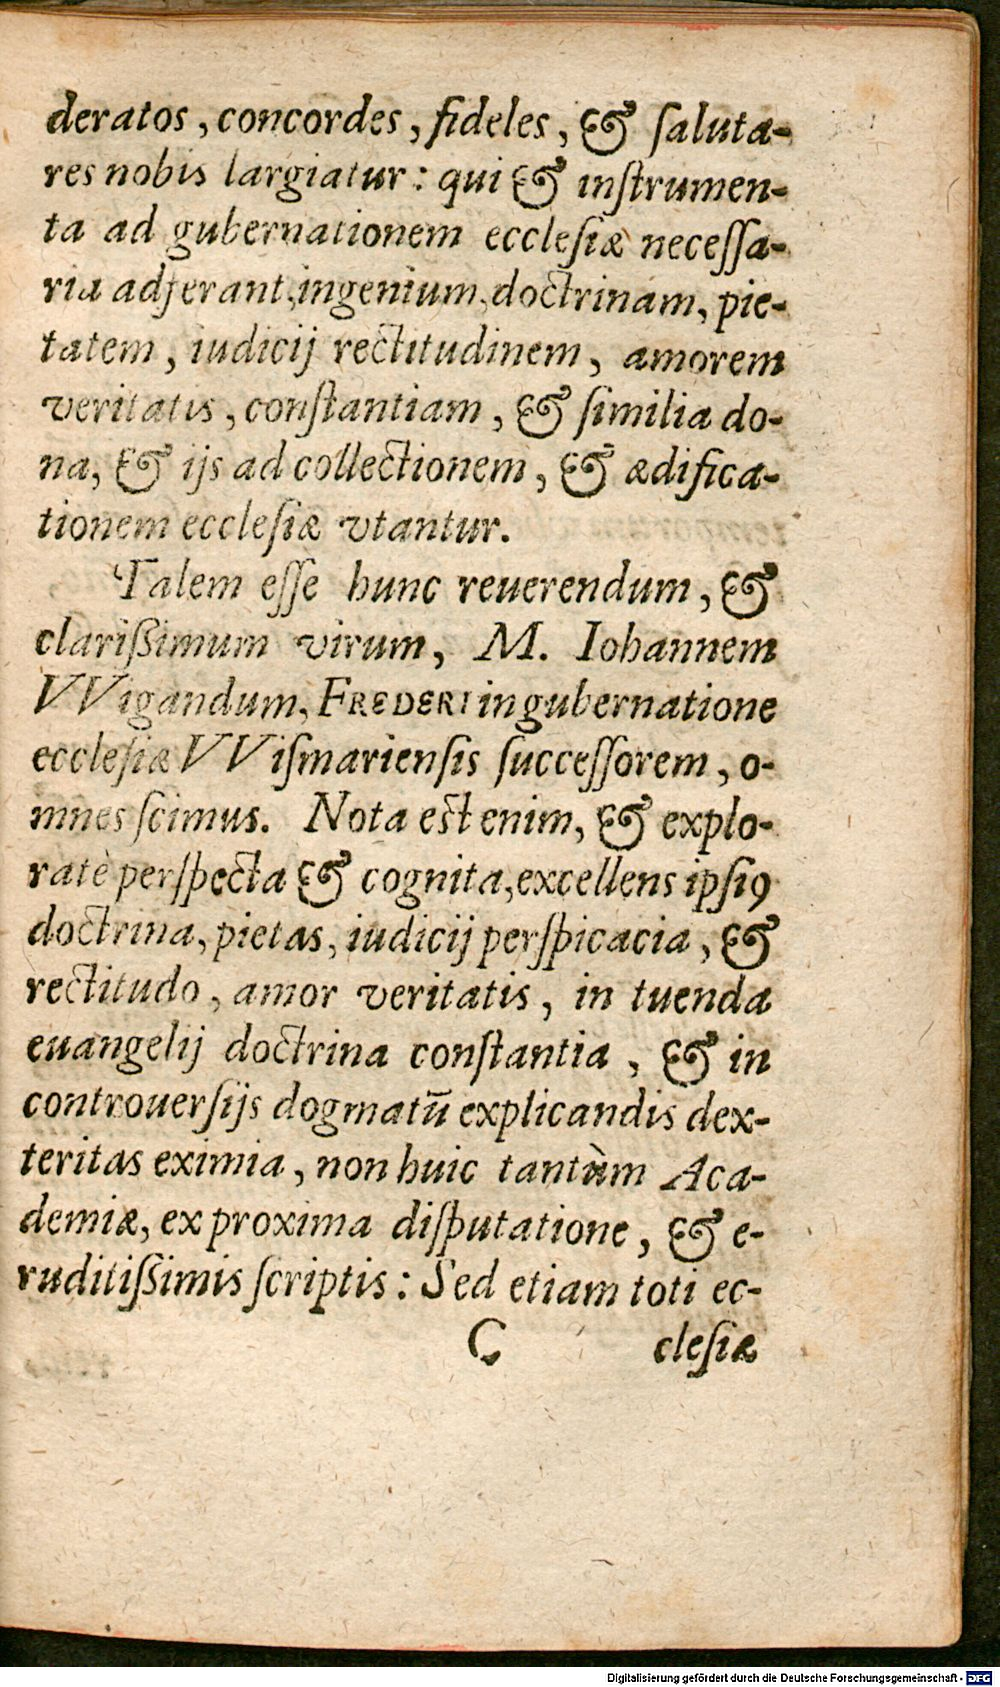 deratos, concordes, fideles, & ſaluta-
res nobis largiatur: qui & inſtrumen-
ta ad gubernationem eccleſiæ neceſſa-
ria adferant, ingenium, doctrinam, pie-
tatem, iudicij rectitudinem, amorem
veritatis, conſtantiam, & ſimilia do-
na, & ijs ad collectionem, & ædifica-
tionem eccleſiæ vtantur.
Talem eſſe hunc reuerendum, &
clariſſimum virum, M. Iohannem
VVigandum, FREDERI in gubernatione
eccleſiæ VViſmarienſis ſucceſſorem, o-
mnes ſcimus. Nota eſt enim, & explo-
ratè perſpecta & cognita, excellens ipſiꝰ
doctrina, pietas, iudicij perſpicacia, &
rectitudo, amor veritatis, in tuenda
euangelij doctrina conſtantia, & in
controuerſijs dogmatū explicandis dex-
teritas eximia, non huic tantùm Aca-
demiæ, ex proxima diſputatione, & e-
ruditiſſimis ſcriptis: Sed etiam toti ec-
C eccleſiæ
Digitalisierung gefördert durch die Deutsche Forschungsgemeinschaft - DFG